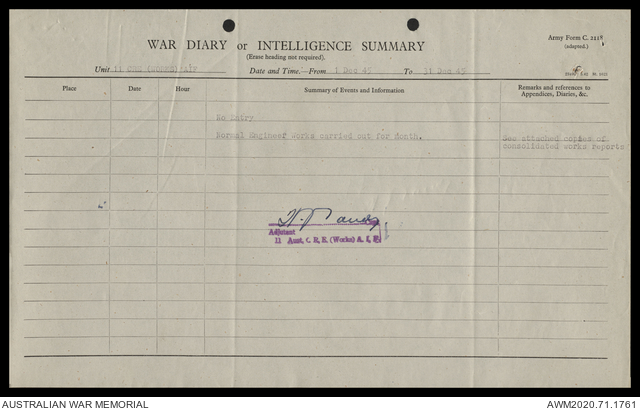 Army Form C. 2118
(adapted.)
WAR DIARY or INTELLIGENCE SUMMARY
(Erase heading not required).
Unit 11 CRE (WORKS) AIF Date and Time.—From 1 Dec 45 To 31 Dec 45
Place Date Hour Summary of Events and Information Remarks and references to
Appendices, Diaries, &c.
No Entry
Normal Engineer Works carried out for month. See attached copies of
consolidated works reports
Adjutant
11 Aust. C. R. E. (Works) A. I. F.
AUSTRALIAN WAR MEMORIAL AWM2020.71.1761